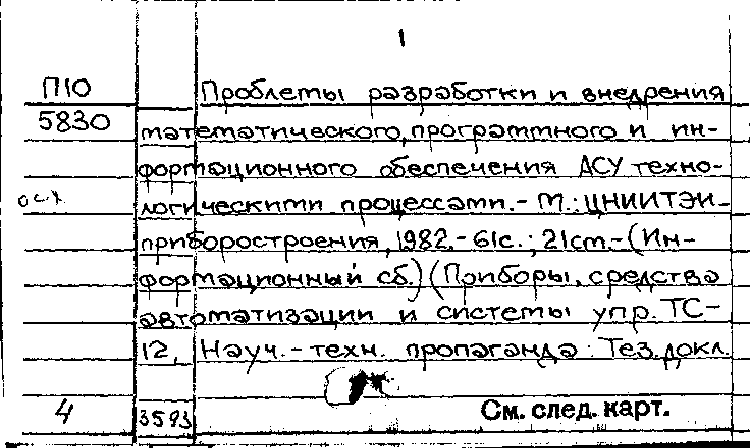 1
П10 Проблемы разработки и внедрения
5830 математического, программного и ин-
формационного обеспечения АСУ техно-
осх логическими процессами.- М.: ЦНИИТЭИ-
приборостроения, 1982.- 61с.; 21см.-(Ин-
формационный сб.) (Приборы, средства
автоматизации и системы упр. ТС-
12, Науч.-техн. пропаганда: Тез. докл.
4 3593 См. след. карт.